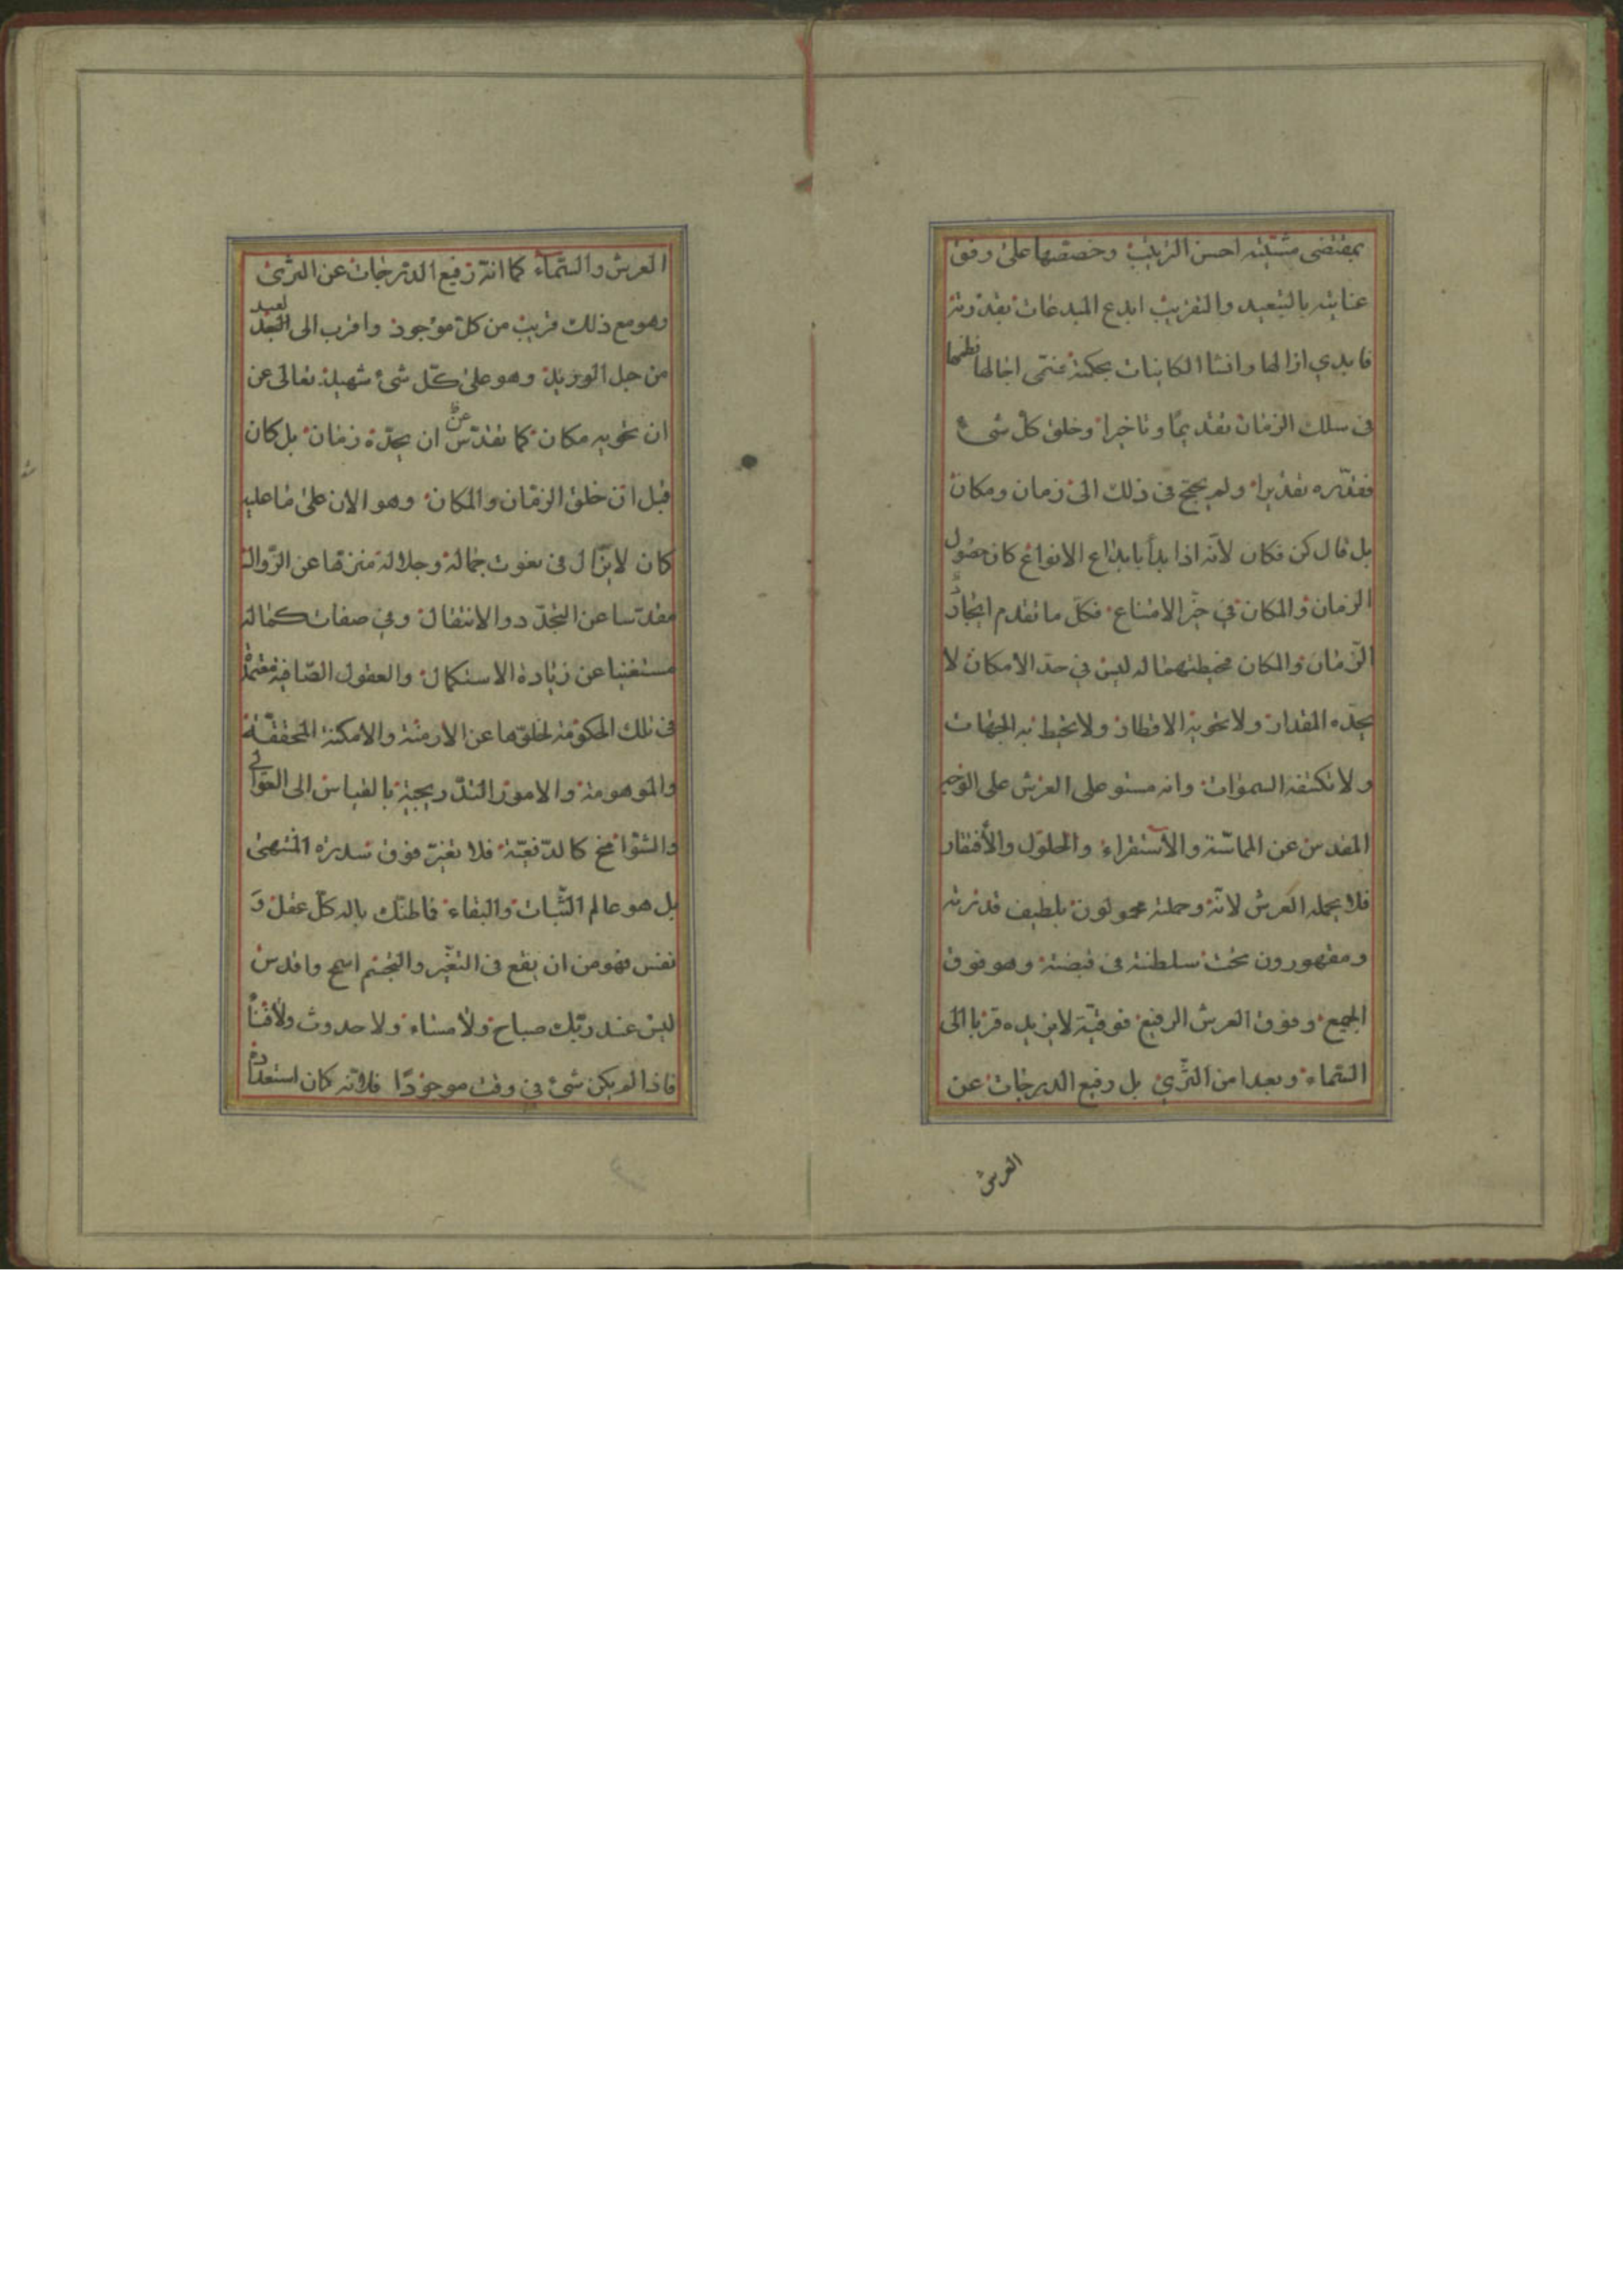 بمقتضى مشيته احسن الترتيب وخصصها على وفق
عنايته بالتبعيد والتقريب ابدع المبدعات بقدرته
فابدي ازالها وانشا الكاينات بحكمة فتمى اجالها نظمها
فى سلك الزمان تقديمًا وتاخيرا وخلق كل شىء
فقدّره تقديرا ولم يحتج فى ذلك الى زمان ومكان
بل قال كن فكان لانّه اذا بدأ بابداع الانواع كان حصول
الزمان والمكان في حيّز الامتناع فكلّ ما تقدم ايجادُ
الزّمان والمكان فحيطتهما له ليس في حد الامكان لا
يحدّه المقدار ولا تحويه الاقطار ولا تحيط به الجهات
ولا تكتنفه السموات وانه مستو على العرش على الوجه
المقدس عن المماسّة والاستقراء والحلول والأفتقار
فلا يحمله العرش لانّه وحملته محمولون بلطيف قدرته
ومقهورون تحت سلطنته فى قبضته وهو فوق
الجميع وفوق العرش الرفيع فوقيّة لا يزيده قربا الى
السّماء وبعدا من الثّري بل رفيع الدرجات عن
العرش
العرش والسّماء كما انّه رفيع الدّرجات عن الثرى
وهو مع ذلك قريب من كلّ موجود واقرب الى العبد لعبيد
من حبل الوريد وهو على كلّ شىء شهيد تعالى عن
ان يحويه مكان كما تقدّس عن ان يحدّه زمان بل كان
قبل ان خلق الزمان والمكان وهو الان على ما عليه
كان لا يزال فى نعوت جماله وجلاله منزها عن الزّوال
مقدّسا عن التجدّد والانتقال وفي صفات كماله
مستغنيا عن زيادة الاستكمال والعقول الصّافية
فى تلك الحكومة لخلوّها عن الازمنة والامكنة المحققّة
والموهومة والامور التدّريجية بالقياس الى العوالى
والشوامخ كالدّفعيّة فلا تغيّر فوق سدرة المنتهى
بل هو عالم الثّبات والبقاء فاظنّك باله كلّ عقل وَ
نفس فهو من ان يقع فى التغيّر والتجسّم اسمح واقدس
ليس عند ربّك صباح ولا مساء ولا حدوث ولا فناً
فاذا لم يكن شىء في وقت موجودًا فلانّه كان استعداد